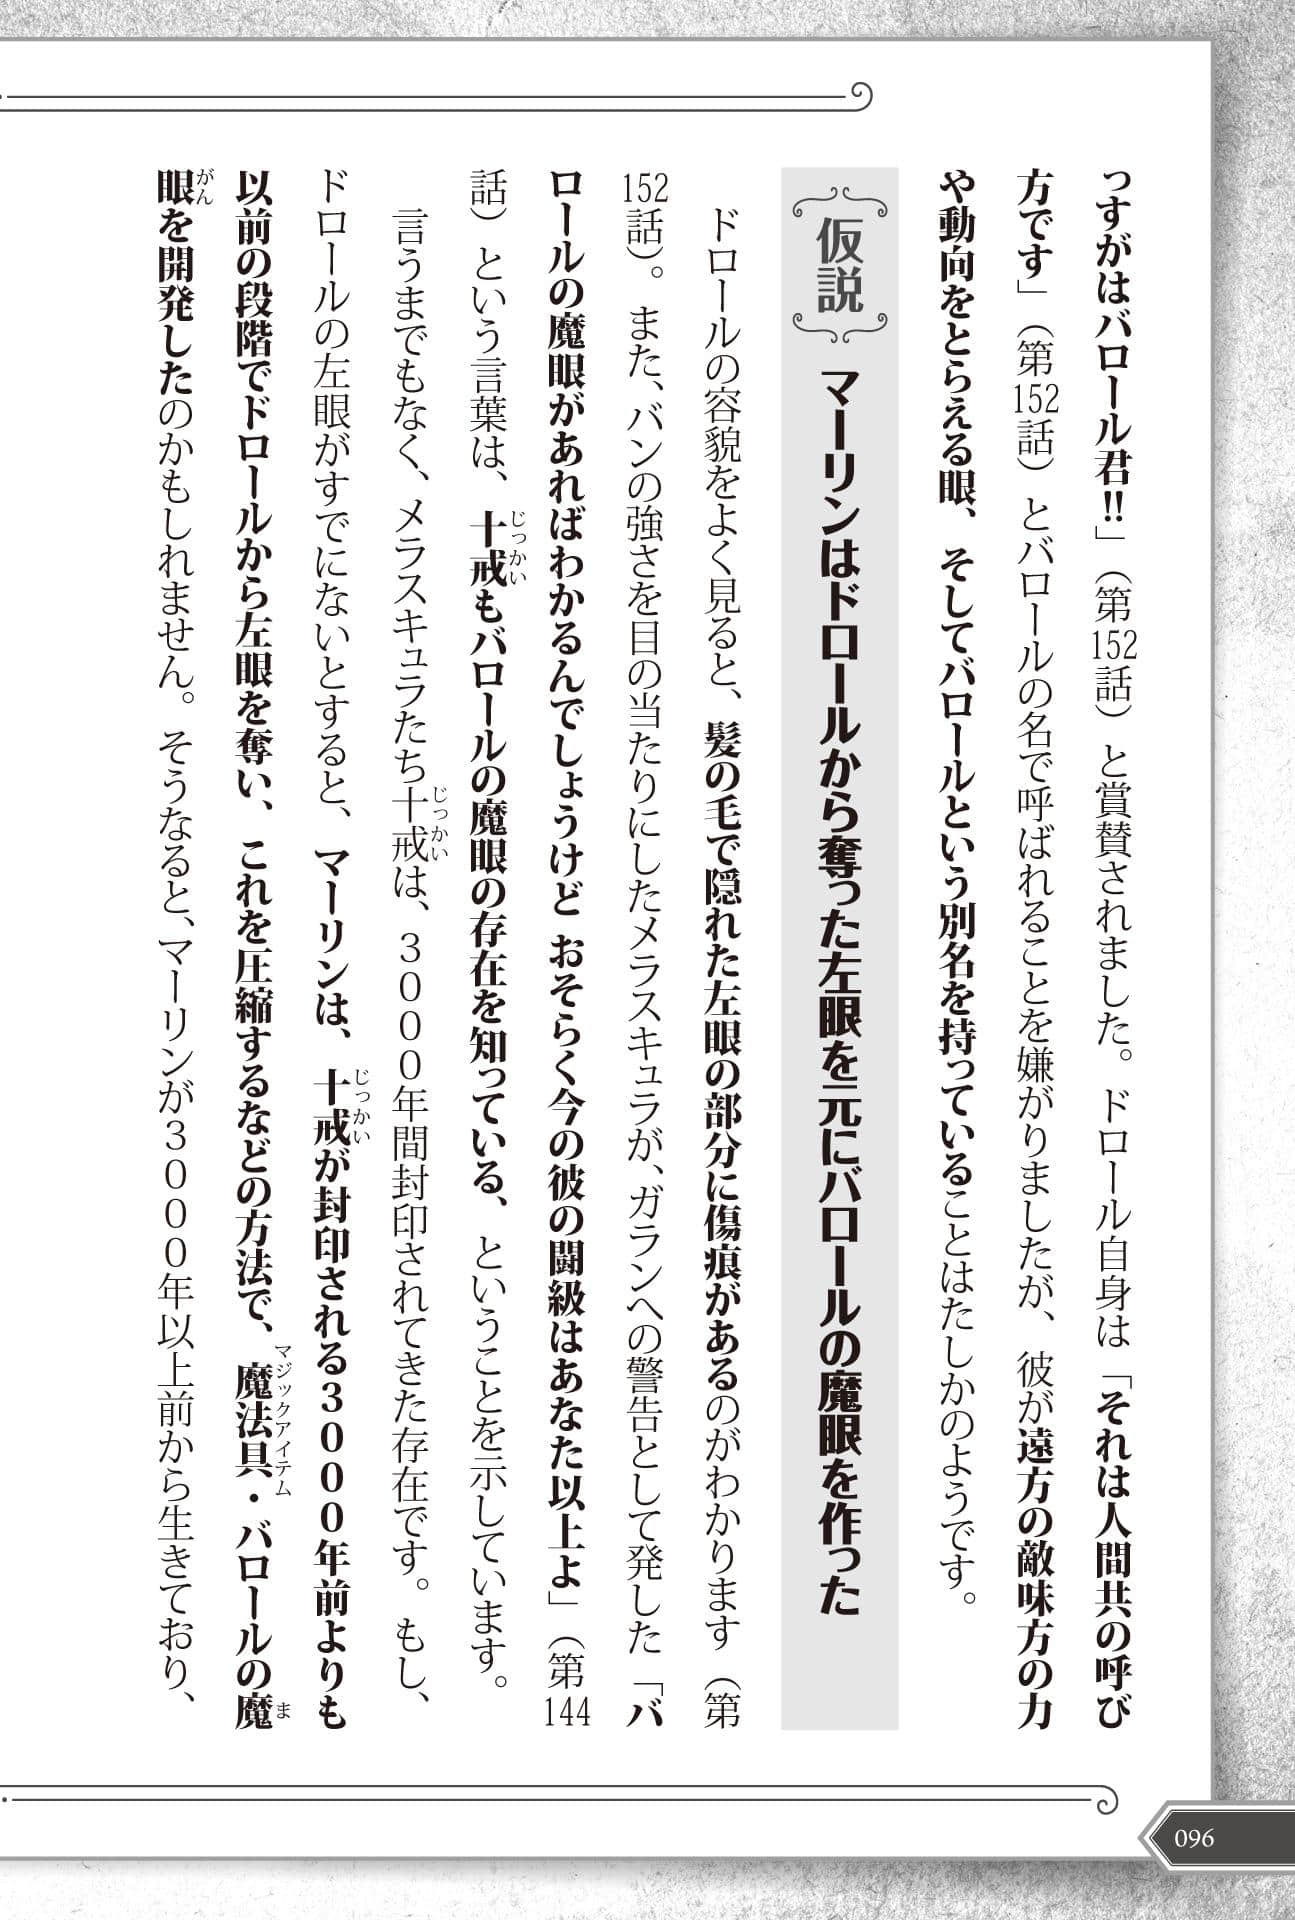 っすがはバロール君!!」（第152話）と賞賛されました。ドロール自身は「それは人間共の呼び
方です」（第152話）とバロールの名で呼ばれることを嫌がりましたが、彼が遠方の敵味方の力
や動向をとらえる眼、そしてバロールという別名を持っていることはたしかのようです。
仮説 マーリンはドロールから奪った左眼を元にバロールの魔眼を作った
ドロールの容貌をよく見ると、髪の毛で隠れた左眼の部分に傷痕があるのがわかります（第
152話）。また、バンの強さを目の当たりにしたメラスキュラが、ガランへの警告として発した「バ
ロールの魔眼があればわかるんでしょうけど おそらく今の彼の闘級はあなた以上よ」（第144
話）という言葉は、十戒もバロールの魔眼の存在を知っている、ということを示しています。
じっかい
言うまでもなく、メラスキュラたち十戒は、3000年間封印されてきた存在です。もし、
じっかい
ドロールの左眼がすでにないとすると、マーリンは、十戒が封印される3000年前よりも
じっかい
以前の段階でドロールから左眼を奪い、これを圧縮するなどの方法で、魔法具・バロールの魔
マジックアイテム
ま
眼を開発したのかもしれません。そうなると、マーリンが3000年以上前から生きており、
がん
096